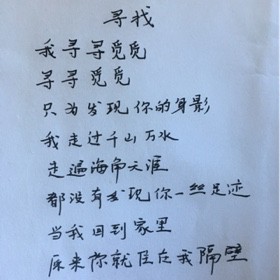 寻找
我寻寻觅觅
寻寻觅觅
只为发现你的身影
我走过千山万水
走遍海角天涯
都没有发现你一丝足迹
当我回到家里
原来你就住在我隔壁